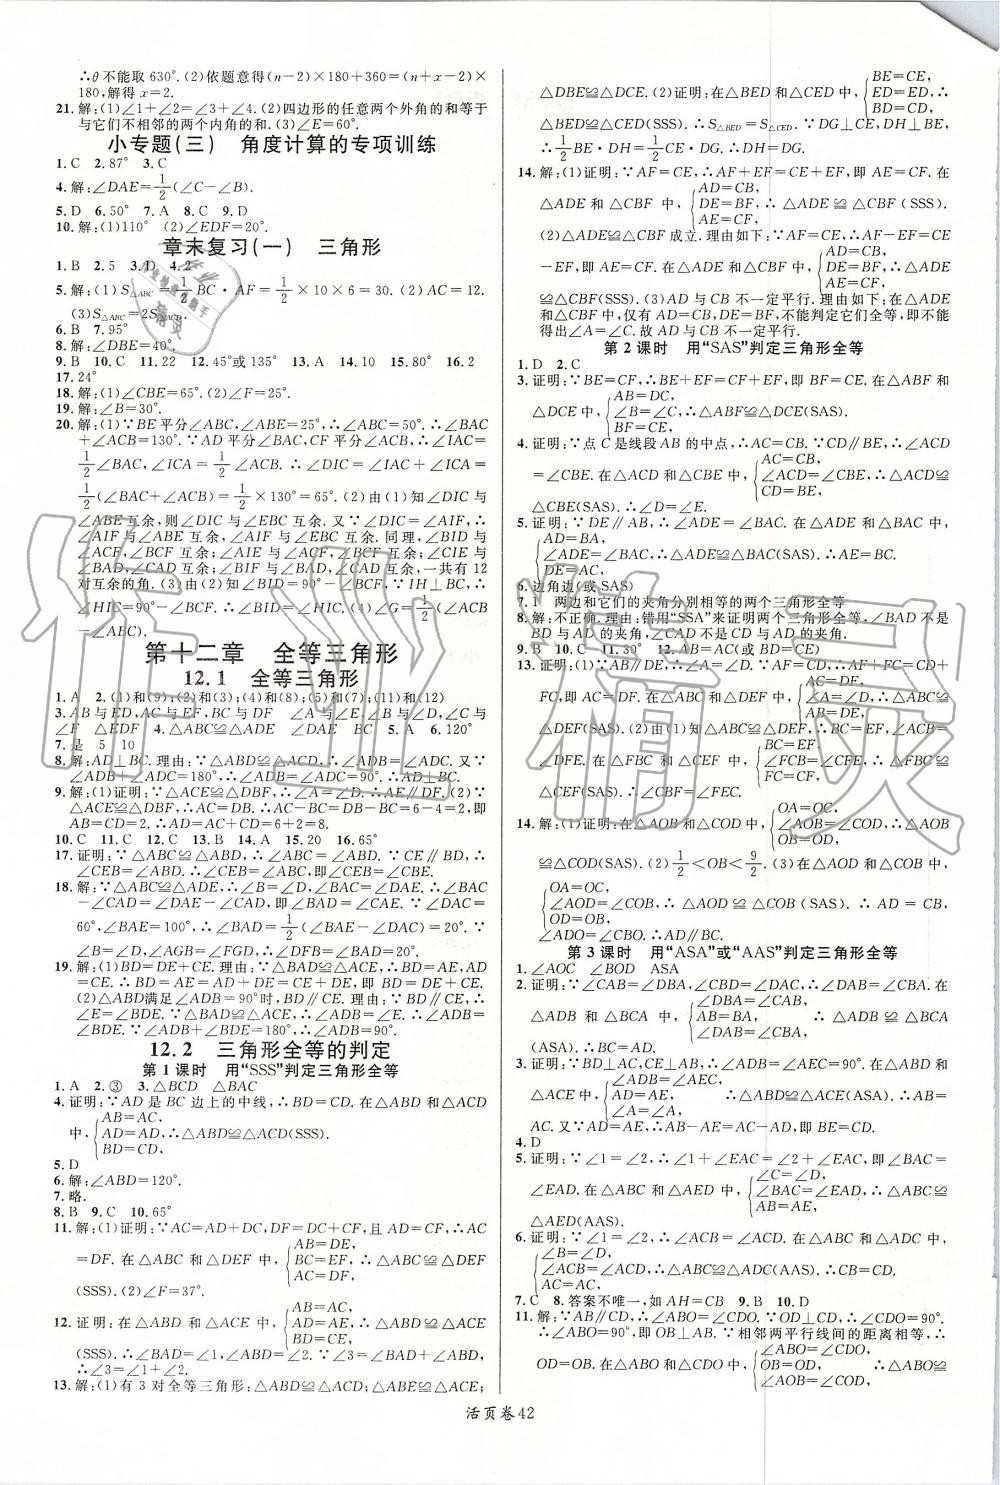 ∴θ不能取 630°. (2)依题意得(n-2)×180+360=(n+x-2)×
180,解得 x=2.
21.解:(1)∠1+∠2=∠3+∠4. (2)四边形的任意两个外角的和等于
与它们不相邻的两个内角的和. (3)∠E=60°.
小专题(三) 角度计算的专项训练
1.C 2.87° 3.C
4.解:∠DAE=1/2(∠C-∠B).
5.D 6.50° 7.A 8.C 9.D
10.解:(1)110° (2)∠EDF=20°.
章末复习(一) 三角形
1.B 2.5 3.D 4.2
5.解:(1)S△ABC=1/2BC·AF=1/2×10×6=30. (2)AC=12.
(3)S△ABC=2S△ACD.
6.B 7.95°
8.解:∠DBE=40°.
9.B 10.C 11.22 12.45°或 135° 13.A 14.10 15.80° 16.2
17.24°
18.解:(1)∠CBE=65°. (2)∠F=25°.
19.解:∠B=30°.
20.解:(1)∵BE平分∠ABC,∠ABE=25°,∴∠ABC=50°. ∴∠BAC
+∠ACB=130°. ∵AD平分∠BAC,CF平分∠ACB,∴∠IAC=
1/2∠BAC,∠ICA=1/2∠ACB. ∴∠DIC=∠IAC+∠ICA=
1/2(∠BAC+∠ACB)=1/2×130°=65°. (2)由(1)知∠DIC与
∠ABE互余,则∠DIC与∠EBC互余. 又∵∠DIC=∠AIF,∴
∠AIF与∠ABE互余,∠AIF与∠EBC互余. 同理:∠BID与
∠ACF,∠BCF互余;∠AIE与∠ACF,∠BCF互余;∠CIE与
∠BAD,∠CAD互余;∠BIF与∠BAD,∠CAD互余,一共有 12
对互余的角. (3)由(2)知∠BID=90°-∠BCF. ∵IH⊥BC,∴
∠HIC=90°-∠BCF. ∴∠BID=∠HIC. (4)∠G=1/2(∠BAC
-∠ABC).
第十二章 全等三角形
12.1 全等三角形
1.A 2.(1)和(9);(2)和(3);(4)和(8);(5)和(7);(11)和(12)
3.AB与ED,AC与EF,BC与DF ∠A与∠E,∠B与∠D,∠C与
∠F △EDF 4.△ABC≌△ADE ∠DAE BC 5.A 6.120°
7.是 5 10
8.解:AD⊥BC. 理由:∵△ABD≌△ACD,∴∠ADB=∠ADC. 又∵
∠ADB+∠ADC=180°,∴∠ADB=∠ADC=90°. ∴AD⊥BC.
9.解:(1)证明:∵△ACE≌△DBF,∴∠A=∠D. ∴AE∥DF. (2)∵
△ACE≌△DBF,∴AC=DB. ∴AC-BC=DB-BC=6-4=2,即
AB=CD=2. ∴AD=AC+CD=6+2=8.
10.C 11.C 12.C 13.B 14.A 15.20 16.65°
17.证明:∵△ABC≌△ABD,∴∠ABC=∠ABD. ∵CE∥BD,∴
∠CEB=∠ABD. ∴∠CEB=∠ABC,即∠CEF=∠ABC.
18.解:∵△ABC≌△ADE,∴∠B=∠D,∠BAC=∠DAE. ∴∠BAC
-∠CAD=∠DAE-∠CAD,即∠BAD=∠CAE. ∵∠DAC=
60°,∠BAE=100°,∴∠BAD=1/2(∠BAE-∠DAC)=20°. ∵
∠B=∠D,∠AGB=∠FGD,∴∠DFB=∠BAD=20°.
19.解:(1)BD=DE+CE. 理由:∵△BAD≌△ACE,∴BD=AE,AD
=CE. ∴BD=AE=AD+DE=CE+DE,即 BD=DE+CE.
(2)△ABD满足∠ADB=90°时,BD∥CE. 理由:∵BD∥CE,∴
∠E=∠BDE. ∵△BAD≌△ACE,∴∠ADB=∠E. ∴∠ADB=
∠BDE. ∵∠ADB+∠BDE=180°,∴∠ADB=90°.
12.2 三角形全等的判定
第 1 课时 用“SSS”判定三角形全等
1.A 2.③ 3.△BCD △BAC
4.证明:∵AD是BC边上的中线,∴BD=CD. 在△ABD和△ACD
AB=AC,
中,AD=AD,∴△ABD≌△ACD(SSS).
BD=CD.
5.D
6.解:∠ABD=120°.
7.略.
8.B 9.C 10.65°
11.解:(1)证明:∵AC=AD+DC,DF=DC+CF,且 AD=CF,∴AC
AB=DE,
=DF. 在△ABC和△DEF中,BC=EF,∴△ABC≌△DEF
AC=DF,
(SSS). (2)∠F=37°.
AB=AC,
12.证明:在△ABD和△ACE中,AD=AE,∴△ABD≌△ACE
BD=CE,
(SSS). ∴∠BAD=∠1,∠ABD=∠2. ∵∠3=∠BAD+∠ABD,
∴∠3=∠1+∠2.
13.解:(1)有 3 对全等三角形:△ABD≌△ACD;△ABE≌△ACE;
BE=CE,
△DBE≌△DCE. (2)证明:在△BED和△CED中,ED=ED,∴
DB=DC,
△BED≌△CED(SSS). ∴S△BED=S△CED. ∵DG⊥CE,DH⊥BE,
∴1/2BE·DH=1/2CE·DG. ∴DG=DH.
14.解:(1)证明:∵AF=CE,∴AF+EF=CE+EF,即 AE=CF. 在
AD=CB,
△ADE和△CBF中,DE=BF,∴△ADE≌△CBF(SSS).
AE=CF.
(2)△ADE≌△CBF成立. 理由如下:∵AF=CE,∴AF-EF=CE
AD=CB,
-EF,即 AE=CF. 在△ADE和△CBF中,DE=BF,∴△ADE
AE=CF,
≌△CBF(SSS). (3)AD与CB不一定平行. 理由如下:在△ADE
和△CBF中,仅有 AD=CB,DE=BF,不能判定它们全等,即不能
得出∠A=∠C. 故 AD与CB不一定平行.
第 2 课时 用“SAS”判定三角形全等
1.D 2.C
3.证明:∵BE=CF,∴BE+EF=CF+EF,即 BF=CE. 在△ABF和
AB=DC,
△DCE中,∠B=∠C,∴△ABF≌△DCE(SAS).
BF=CE.
4.证明:∵点C是线段AB的中点,∴AC=CB. ∵CD∥BE,∴∠ACD
AC=CB,
=∠CBE. 在△ACD和△CBE中,∠ACD=∠CBE,∴△ACD≌
CD=BE,
△CBE(SAS). ∴∠D=∠E.
5.证明:∵DE∥AB,∴∠ADE=∠BAC. 在△ADE和△BAC中,
AD=BA,
∠ADE=∠BAC,∴△ADE≌△BAC. ∴AE=BC.
DE=AC,
6.边角边(或 SAS)
7.1 两边和它们的夹角分别相等的两个三角形全等
8.解:不正确. 理由:错用“SSA”来证明两个三角形全等,∠BAD不是
BD与AB的夹角,∠CAD也不是CD与AD的夹角.
9.B 10.C 11.30° 12.AB=AC(或BD=CE)
13.证明:(1)∵AB∥DE,∴∠A=∠D. ∵AF=CD,∴AF+FC=CD+
AB=DE,
FC,即 AC=DF. 在△ABC和△DEF中,∠A=∠D,∴△ABC≌
AC=DF,
△DEF(SAS). (2)由(1)知△ABC≌△DEF,∴BC=EF,∠ACB=
BC=EF,
∠DFE. 在△FBC和△CEF中,∠FCB=∠CFE,∴△FBC≌
CF=FC,
△CEF(SAS).
OA=OC,
14.解:(1)证明:在△AOB和△COD中,∠AOB=∠COD,∴△AOB
OB=OD,
≌△COD(SAS). (2)1/2<OB<9/2. (3)在△AOD和△COB中,
OA=OC,
∠AOD=∠COB,∴△AOD≌△COB(SAS). ∴AD=CB,
OD=OB,
∠ADO=∠CBO. ∴AD∥BC.
第 3 课时 用“ASA”或“AAS”判定三角形全等
1.∠AOC ∠BOD ASA
2.证明:∵∠CAB=∠DBA,∠CBD=∠DAC,∴∠DAB=∠CBA. 在
∠DAB=∠CBA,
△ADB和△BCA中,AB=BA, ∴△ADB≌△BCA
∠DBA=∠CAB,
(ASA). ∴BC=AD.
3.证明:∵BD⊥AC,CE⊥AB,∴∠ADB=∠AEC=90°. 在△ADB和
∠ADB=∠AEC,
△ACE中,AD=AE, ∴△ADB≌△AEC(ASA). ∴AB=
∠A=∠A,
AC. 又∵AD=AE,∴AB-AE=AC-AD,即 BE=CD.
4.D
5.证明:∵∠1=∠2,∴∠1+∠EAC=∠2+∠EAC,即∠BAC=
∠C=∠D,
∠EAD. 在△ABC和△AED中,∠BAC=∠EAD,∴△ABC≌
AB=AE,
△AED(AAS).
6.证明:∵∠1=∠2,∴∠ACB=∠ACD. 在△ABC和△ADC中,
∠B=∠D,
∠ACB=∠ACD,∴△ABC≌△ADC(AAS). ∴CB=CD.
AC=AC,
7.C 8.答案不唯一,如 AH=CB 9.B 10.D
11.解:∵AB∥CD,∴∠ABO=∠CDO. ∵OD⊥CD,∴∠CDO=90°.
∴∠ABO=90°,即 OB⊥AB. ∵相邻两平行线间的距离相等,∴
∠ABO=∠CDO,
OD=OB. 在△ABO和△CDO中,OB=OD, ∴△ABO≌
∠AOB=∠COD,
活页卷 42
作业精灵